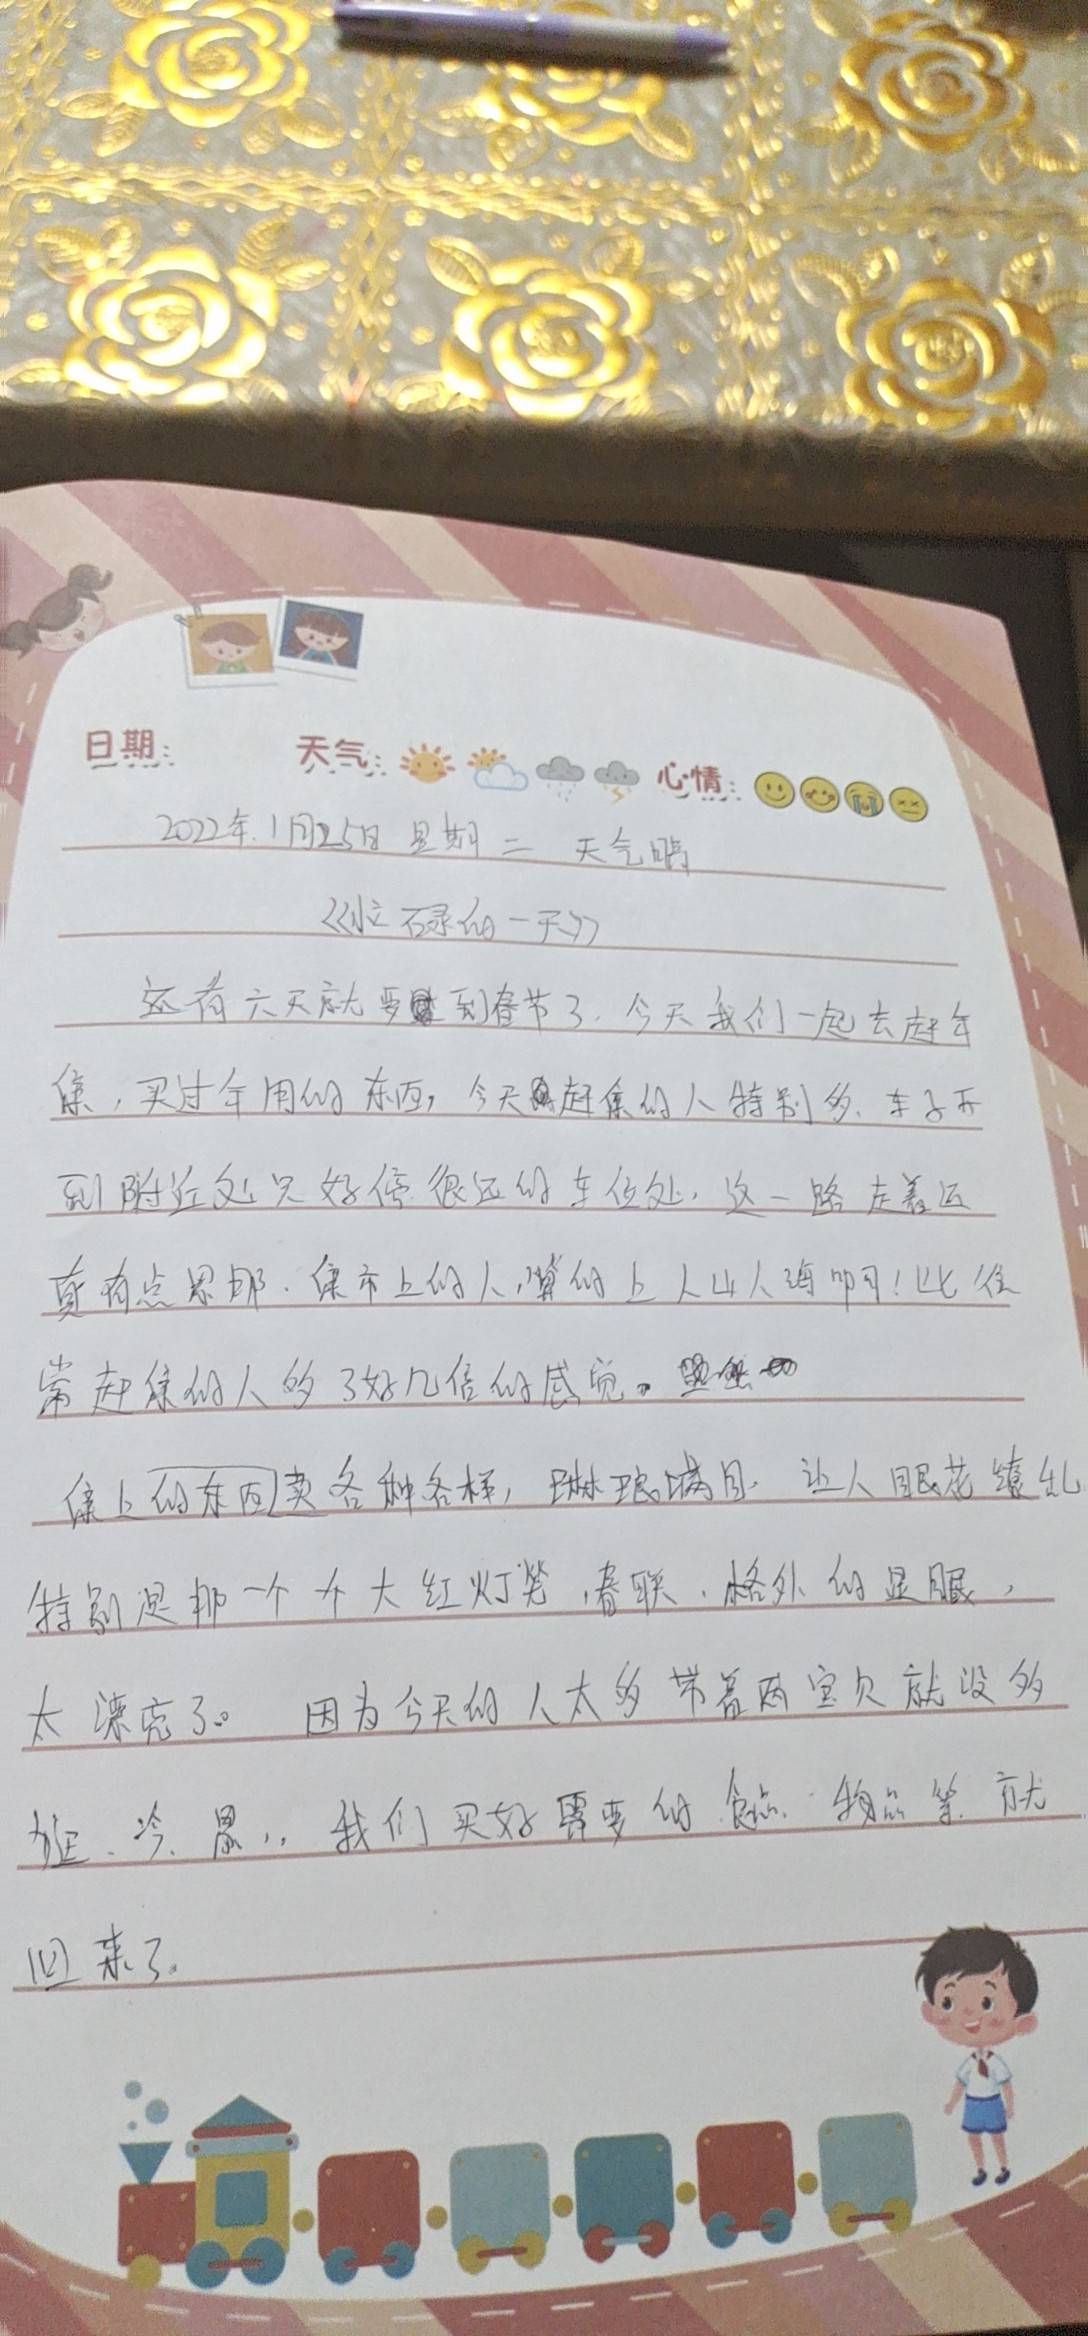 日期： 天气： 心情：
2022年.1月25日 星期二 天气晴
《忙碌的一天》
还有六天就要到春节了.今天我们一起去赶年
集,买过年用的东西,今天赶集的人特别多、车子开
到附近处只好停很远的车位处,这一路走着还
真有点累那.集市上的人,算的上人山人海啊!比往
常赶集的人多了好几倍的感觉。
集上的东西卖各种各样,琳琅满目.让人眼花缭乱
特别是那一个个大红灯笼,春联、格外的显眼,
太漂亮了。 因为今天的人太多带着两宝贝就没多
逛、冷、累,,我们买好需要的食品、物品等就
回来了.